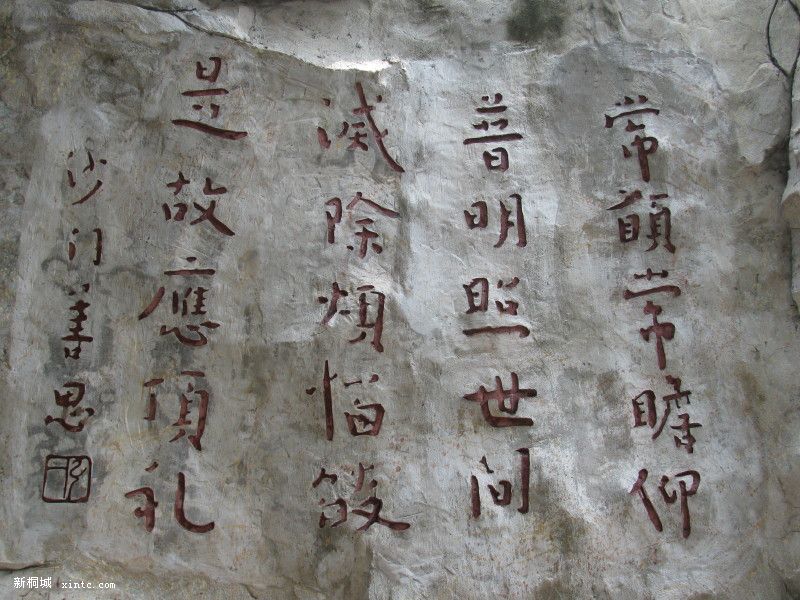 常願常瞻仰
普明照世间
滅除煩惱
是故應頂礼
沙门善思
新桐城 xintc.com